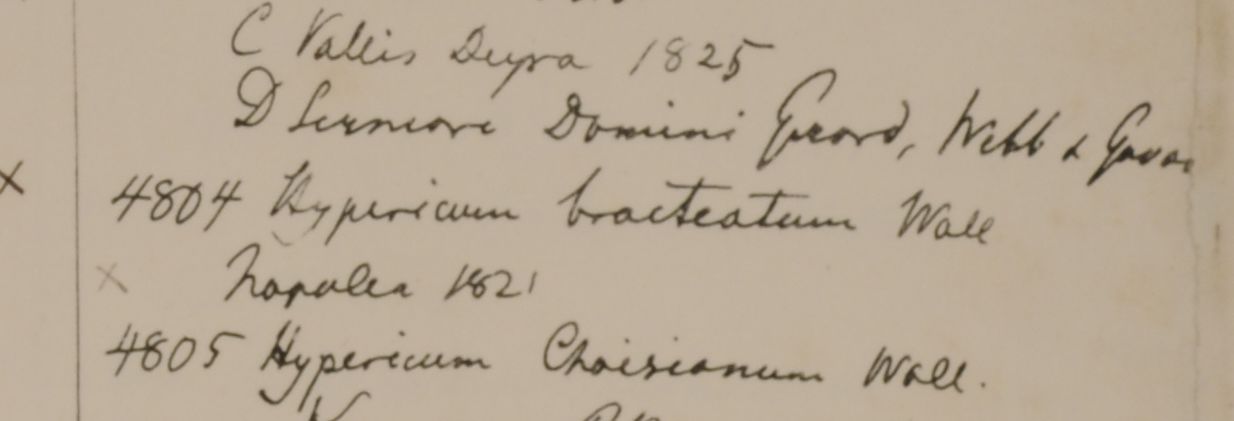 C Vallis Deyra 1825
D Sermore Domini Gerard, Webb & Govan
× 4804 Hypericum bracteatum Wall
× Napalea 1821
4805 Hypericum Choisianum Wall.